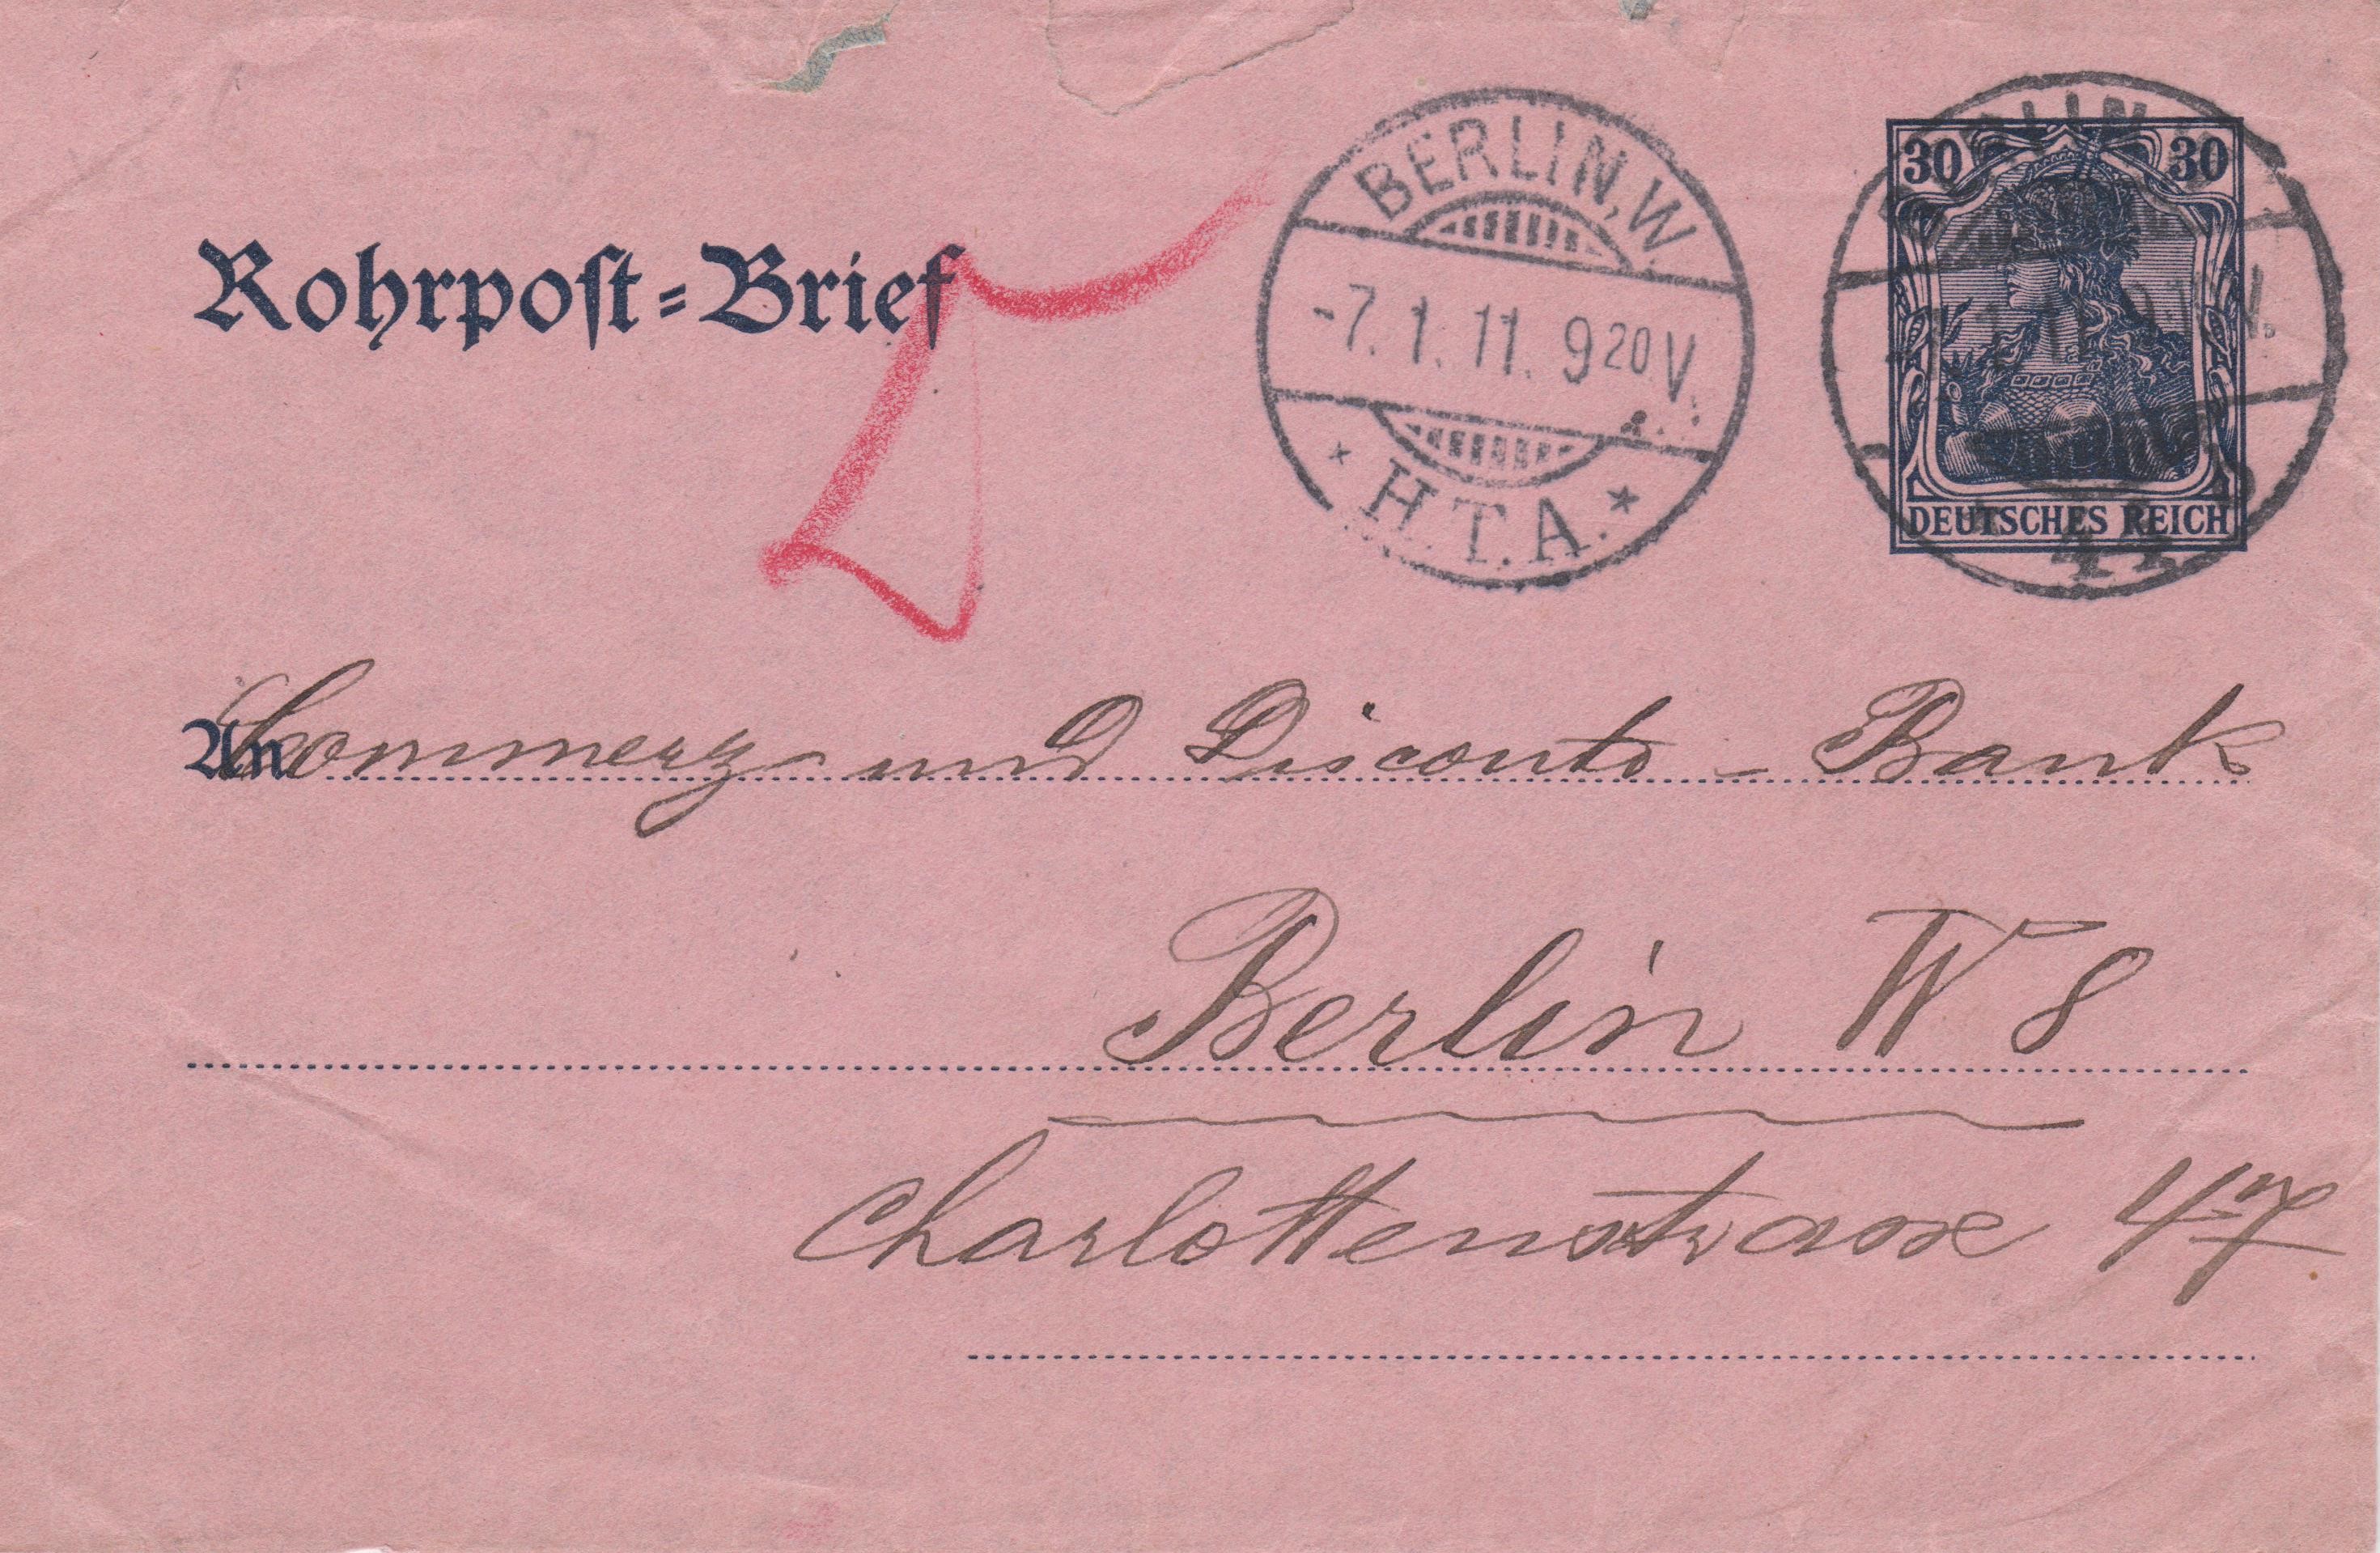 Rohrpoſt=Brief
BERLIN, W.
-7. 1. 11. 9 20 V.
* H. T. A. *
30 30
DEUTSCHES REICH
An Commerz- und Disconto-Bank
Berlin W 8
Charlottenstrasse 47